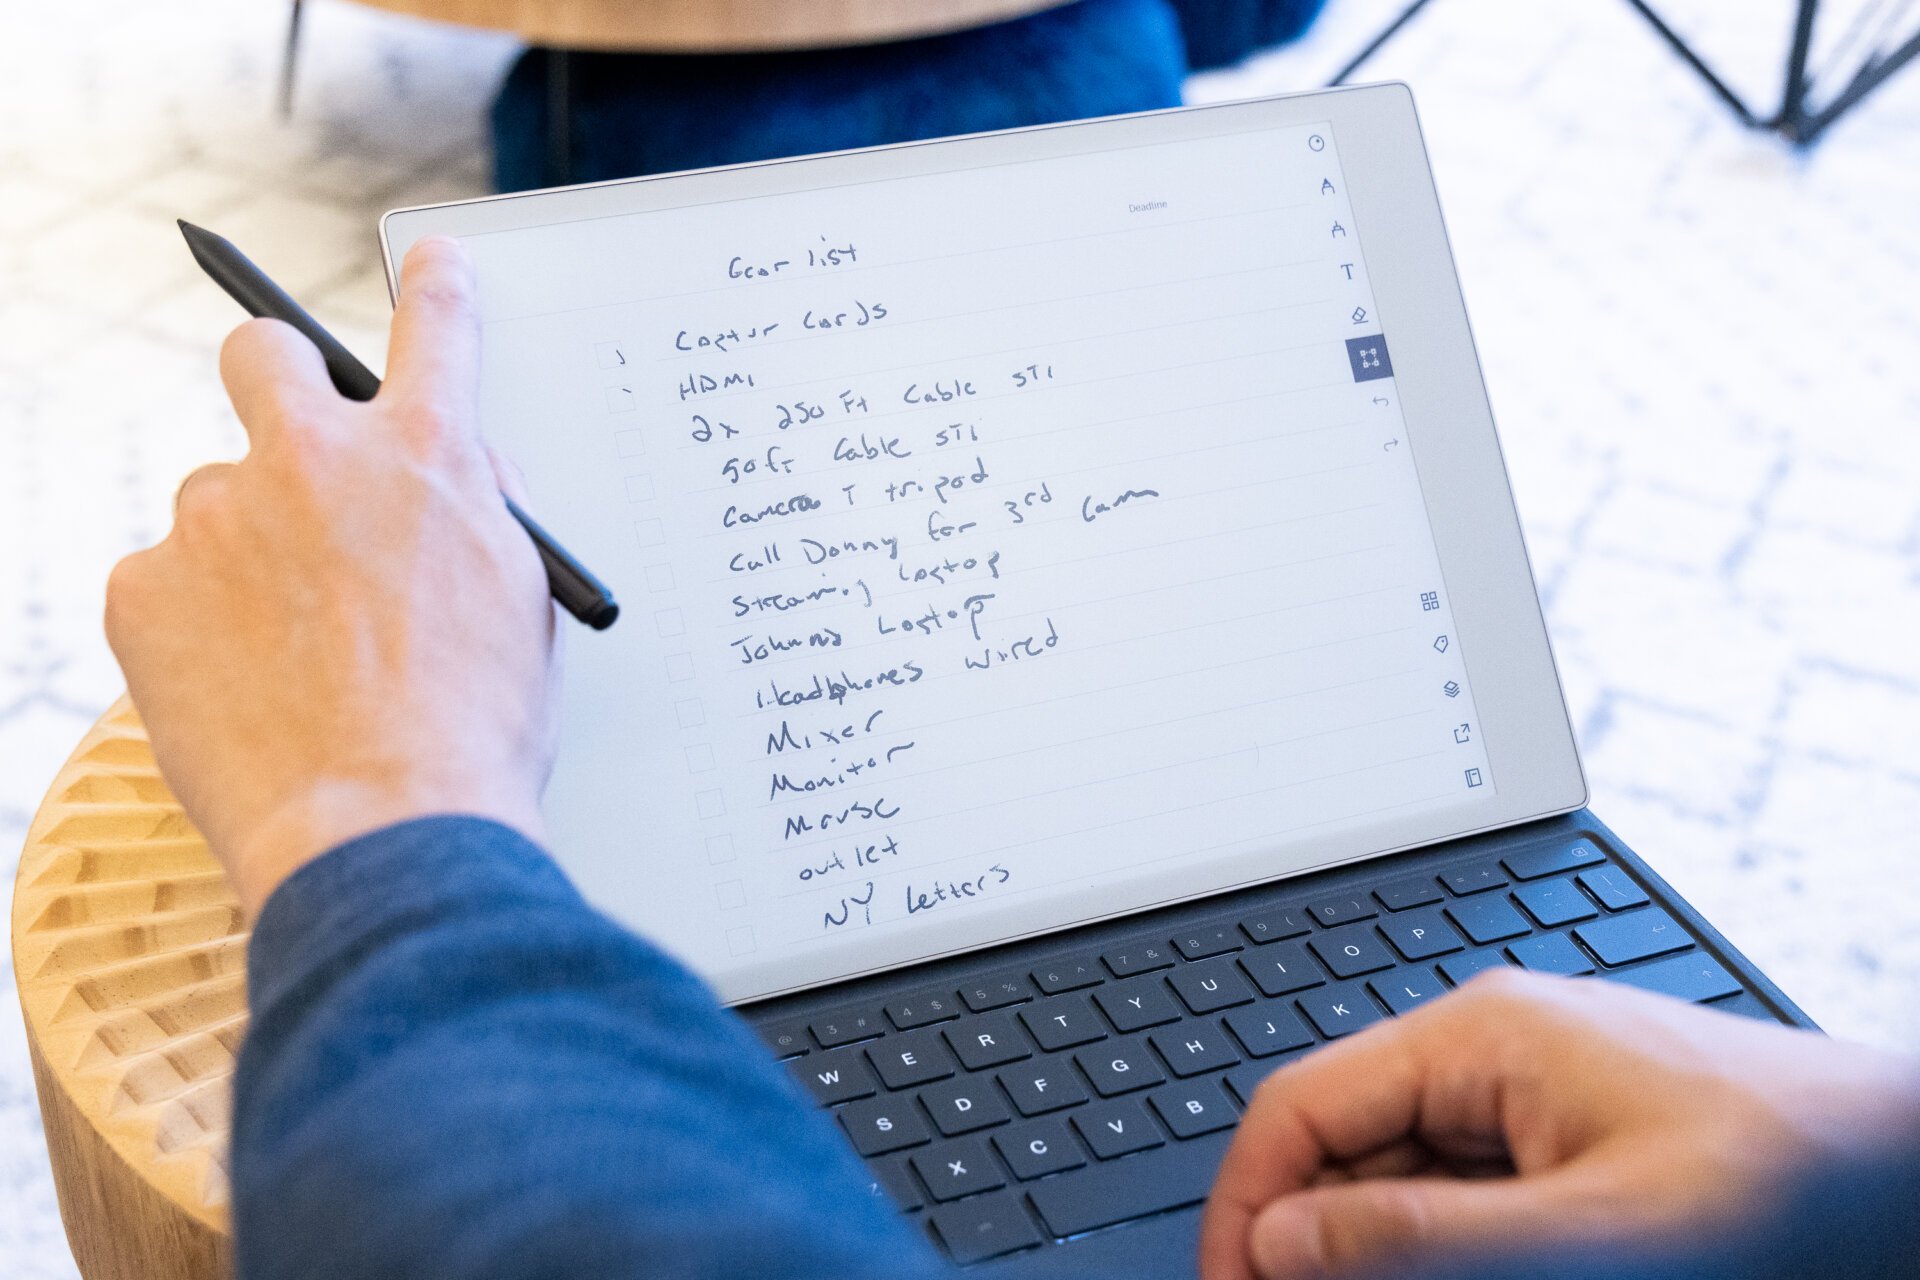 Deadline
Gear list
Captur Cards
HDMI
2x 250 Ft Cable STI
50ft Cable STI
Camera T tripod
Call Donny for 3rd Cam
Streaming Laptop
Johnns Laptop
Headphones Wired
Mixer
Monitor
Mouse
outlet
NY Letters
T
@ 3 # 4 $ 5 % 6 ^ 7 & 8 * 9 ( 0 ) - = +
W E R T Y U I O P
S D F G H J K L
Z X C V B